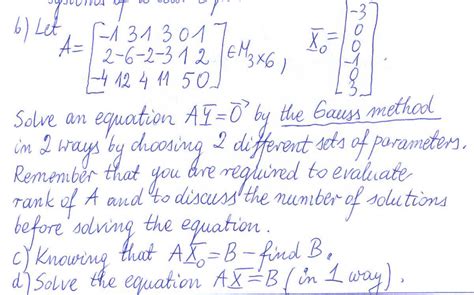 systems of
b) Let A = [-1 3 1 3 0 1
2 -6 -2 -3 1 2
-4 12 4 11 5 0] ∈ M₃ₓ₆, X̄₀ = [-3
0
0
-1
0
3]
Solve an equation AȲ = 0⃗ by the Gauss method
in 2 ways by choosing 2 different sets of parameters.
Remember that you are required to evaluate
rank of A and to discuss the number of solutions
before solving the equation.
c) Knowing that AX̄₀ = B – find B.
d) Solve the equation AX̄ = B (in 1 way).